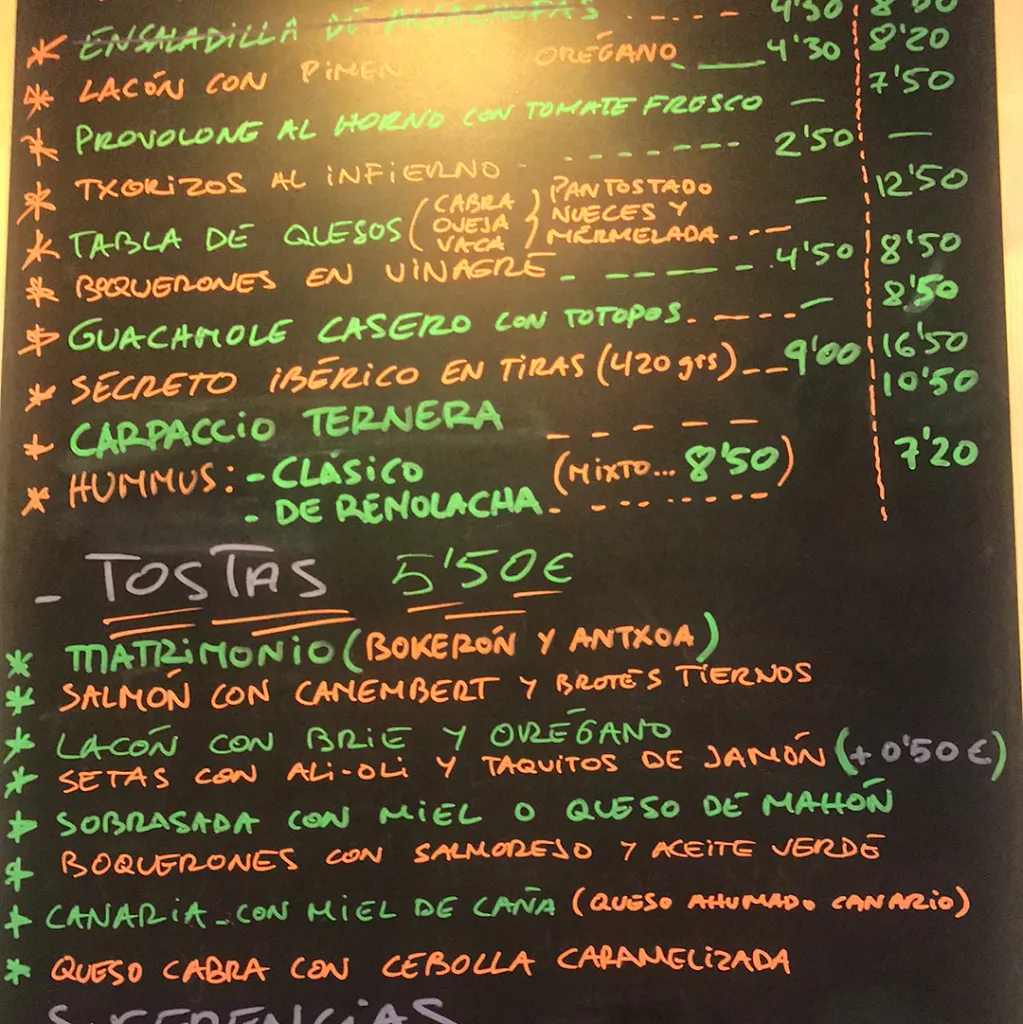 * ENSALADILLA DE ALCACHOFAS ..---- 4'30 8'00
* LACÓN CON PIMEN ORÉGANO ---- 4'30 8'20
* PROVOLONE AL HORNO CON TOMATE FRESCO — 7'50
* TXORIZOS AL INFIERNO -------- 2'50 —
* TABLA DE QUESOS (CABRA OVEJA VACA) PAN TOSTADO NUECES Y MERMELADA ---- — 12'50
* BOQUERONES EN VINAGRE ------- 4'50 8'50
* GUACAMOLE CASERO CON TOTOPOS ----- — 8'50
* SECRETO IBÉRICO EN TIRAS (420 grs) --- 9'00 16'50
* CARPACCIO TERNERA ------ 10'50
* HUMMUS: - CLÁSICO (MIXTO... 8'50) 7'20
- DE REMOLACHA --------
- TOSTAS 5'50€
* MATRIMONIO (BOKERÓN Y ANTXOA)
* SALMÓN CON CAMEMBERT Y BROTES TIERNOS
* LACÓN CON BRIE Y ORÉGANO
* SETAS CON ALI-OLI Y TAQUITOS DE JAMÓN (+0'50€)
* SOBRASADA CON MIEL O QUESO DE MAHÓN
* BOQUERONES CON SALMOREJO Y ACEITE VERDE
* CANARIA - CON MIEL DE CAÑA (QUESO AHUMADO CANARIO)
* QUESO CABRA CON CEBOLLA CARAMELIZADA
SUGERENCIAS